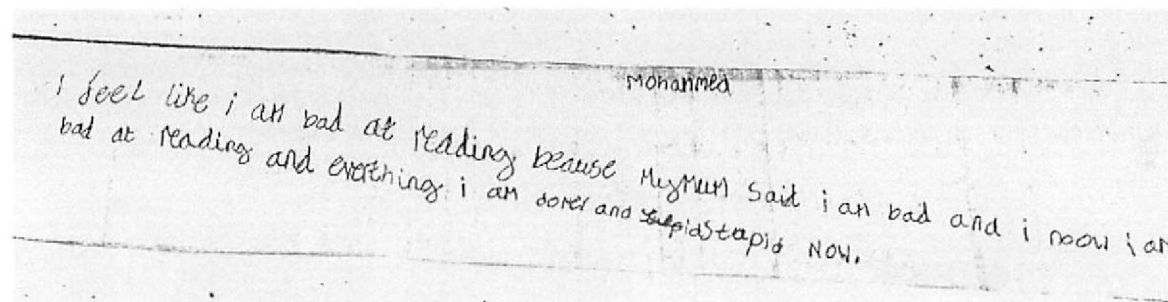 Mohammed
i feel like i am bad at reading beause MyMum said i am bad and i noow i am
bad at reading and everthing i am and stupid Now.